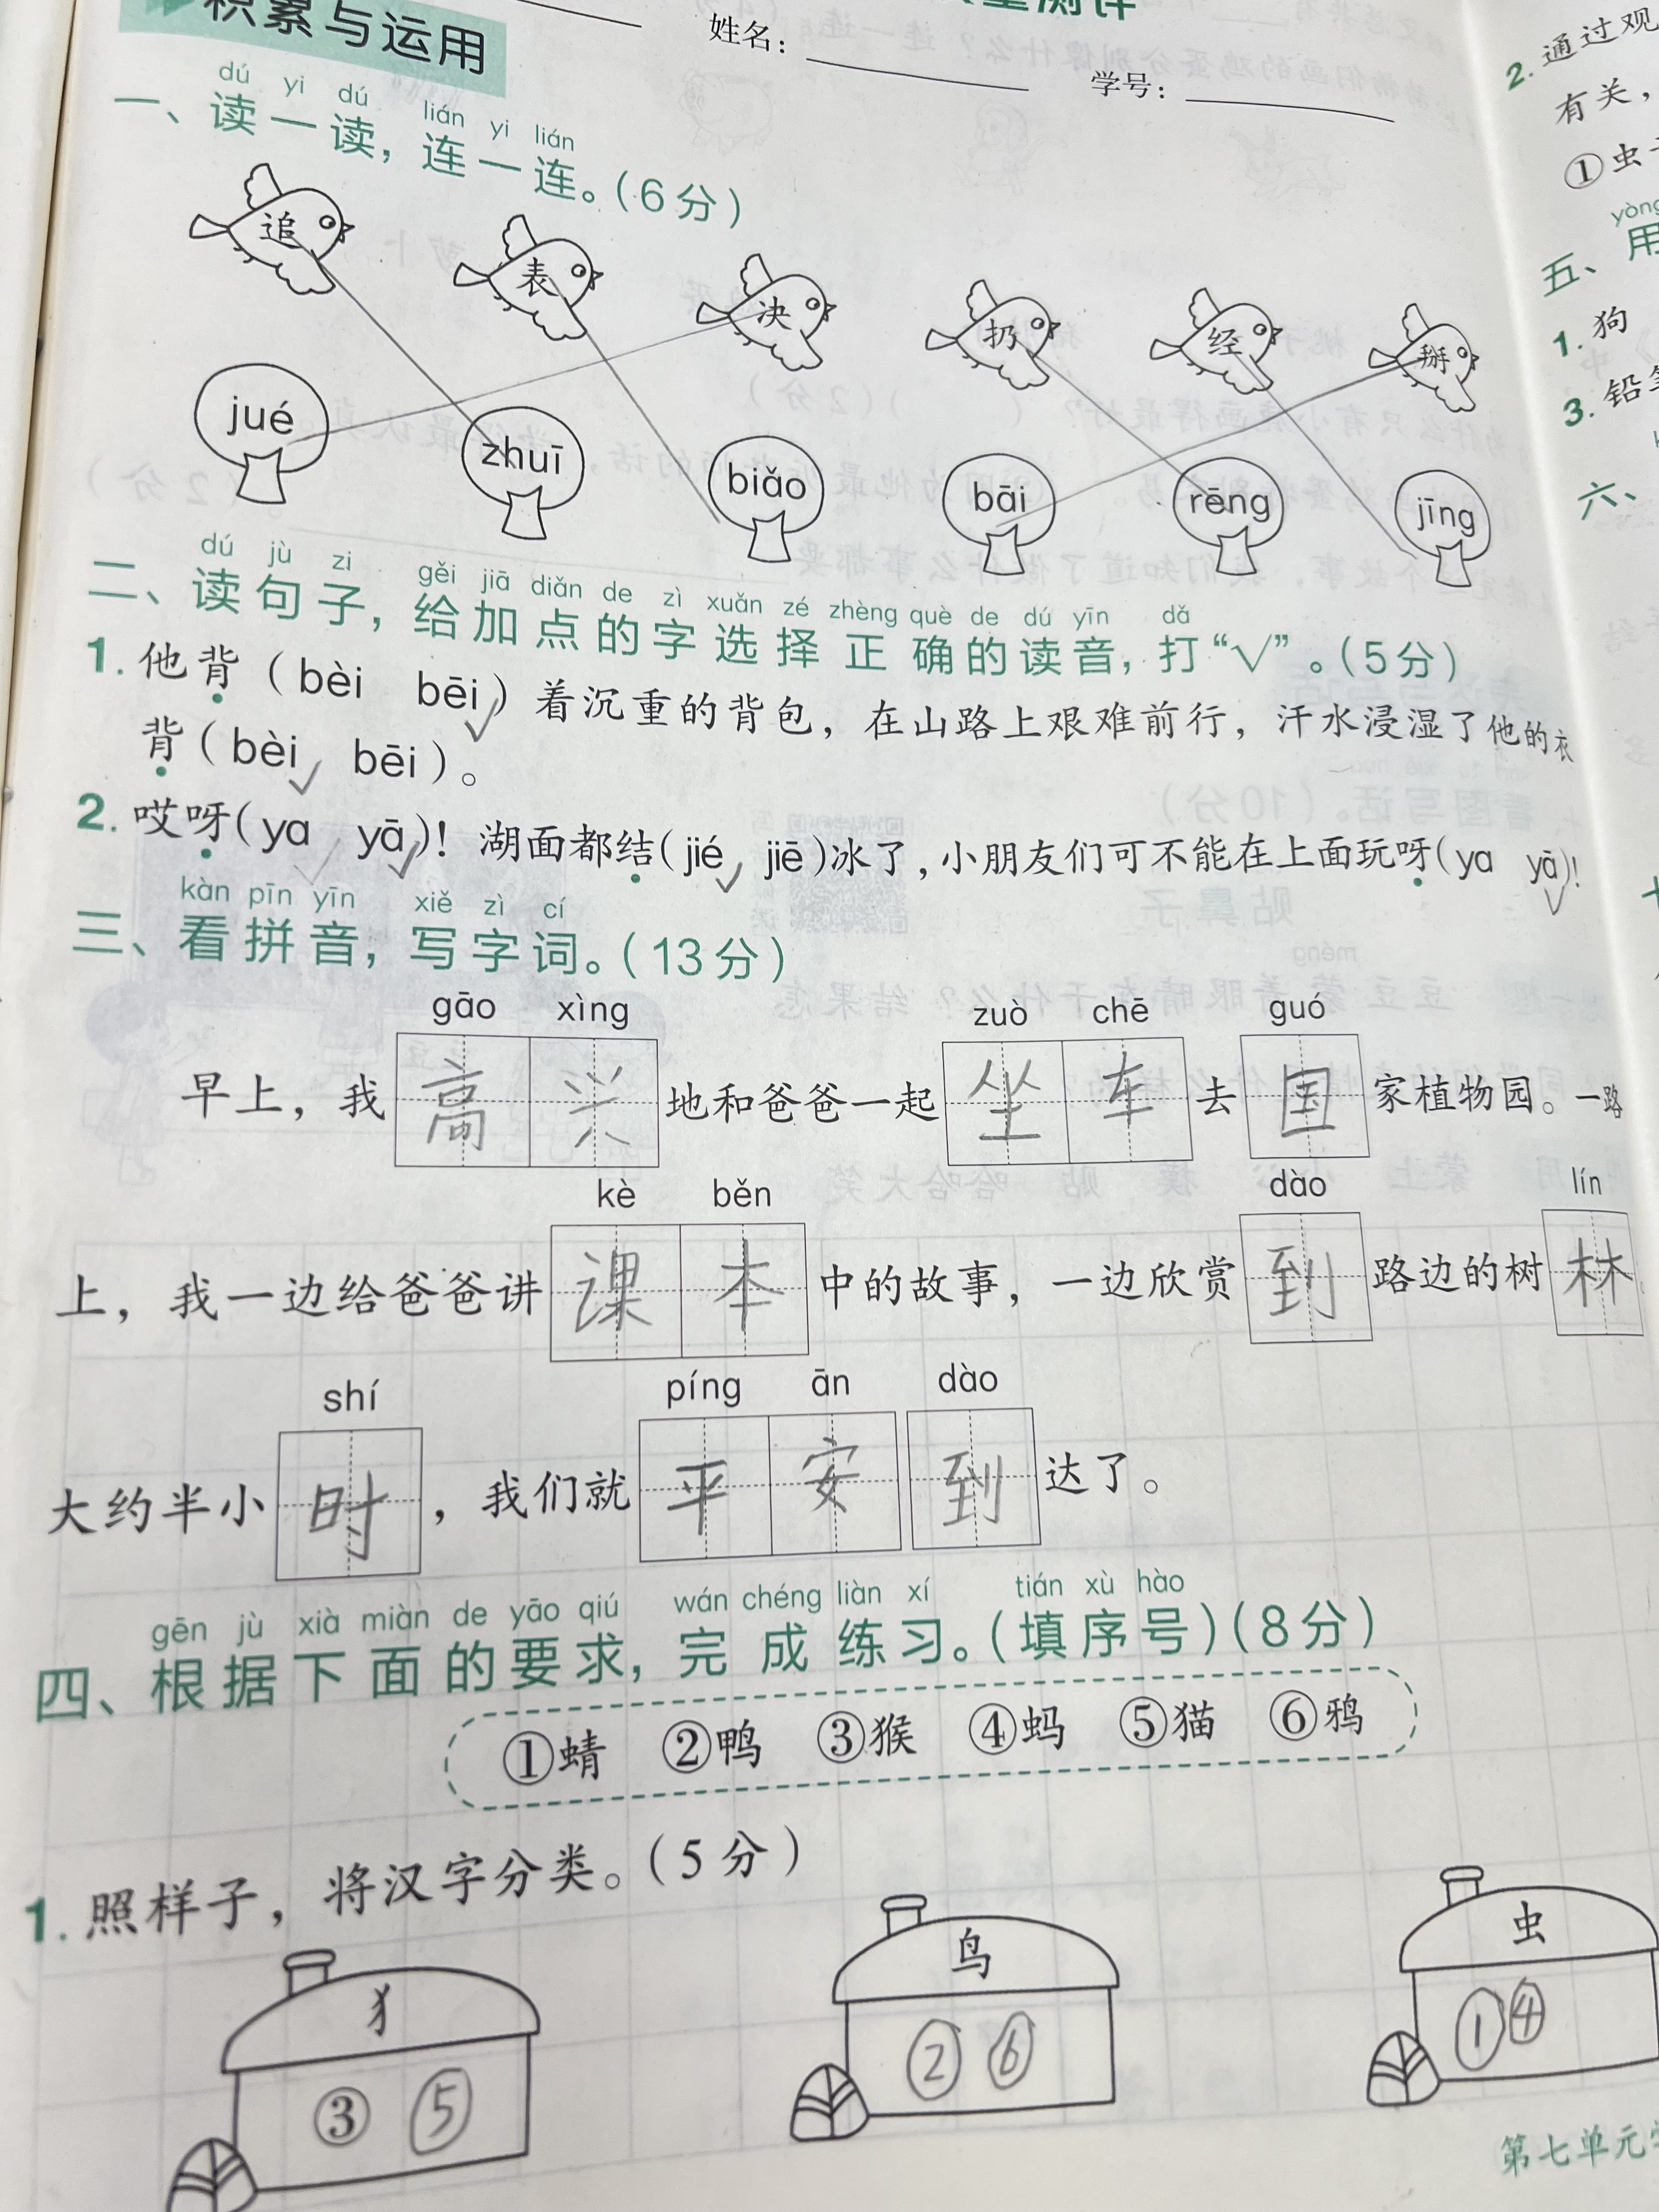 积累与运用
姓名：
学号：
dú yi dú lián yi lián
一、读一读，连一连。（6分）
追 表 决 扔 经 掰
jué zhuī biǎo bāi rēng jīng
dú jù zi gěi jiā diǎn de zì xuǎn zé zhèng què de dú yīn dǎ
二、读句子，给加点的字选择正确的读音，打“√”。（5分）
1. 他背（bèi bēi✓）着沉重的背包，在山路上艰难前行，汗水浸湿了他的衣
背（bèi✓ bēi）。
2. 哎呀(ya yā✓)！湖面都结(jié✓ jiē)冰了，小朋友们可不能在上面玩呀(ya yā✓)！
kàn pīn yīn xiě zì cí
三、看拼音，写字词。（13分）
gāo xìng zuò chē guó
早上，我高兴地和爸爸一起坐车去国家植物园。一路
kè běn dào lín
上，我一边给爸爸讲课本中的故事，一边欣赏到路边的树林
shí píng ān dào
大约半小时，我们就平安到达了。
gēn jù xià miàn de yāo qiú wán chéng liàn xí tián xù hào
四、根据下面的要求，完成练习。（填序号）（8分）
①蜻 ②鸭 ③猴 ④蚂 ⑤猫 ⑥鸦
1. 照样子，将汉字分类。（5分）
犭 鸟 虫
③ ⑤ ② ⑥ ① ④
第七单元
2. 通过观
有关，
①虫
yòng
五、用
1. 狗
3. 铅
六、